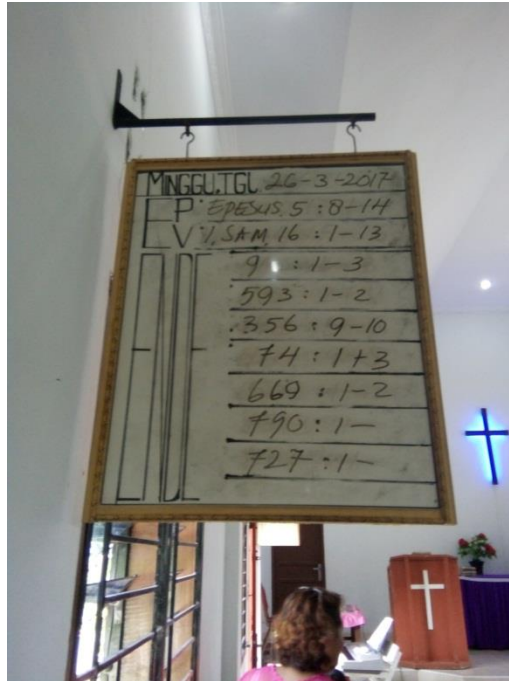 MINGGU, TGL 26-3-2017
EP: EPESUS. 5 : 8-14
EV: 1. SAM. 16 : 1-13
ENDE
9 : 1-3
593 : 1-2
.356 : 9-10
74 : 1+3
669 : 1-2
790 : 1-
727 : 1-